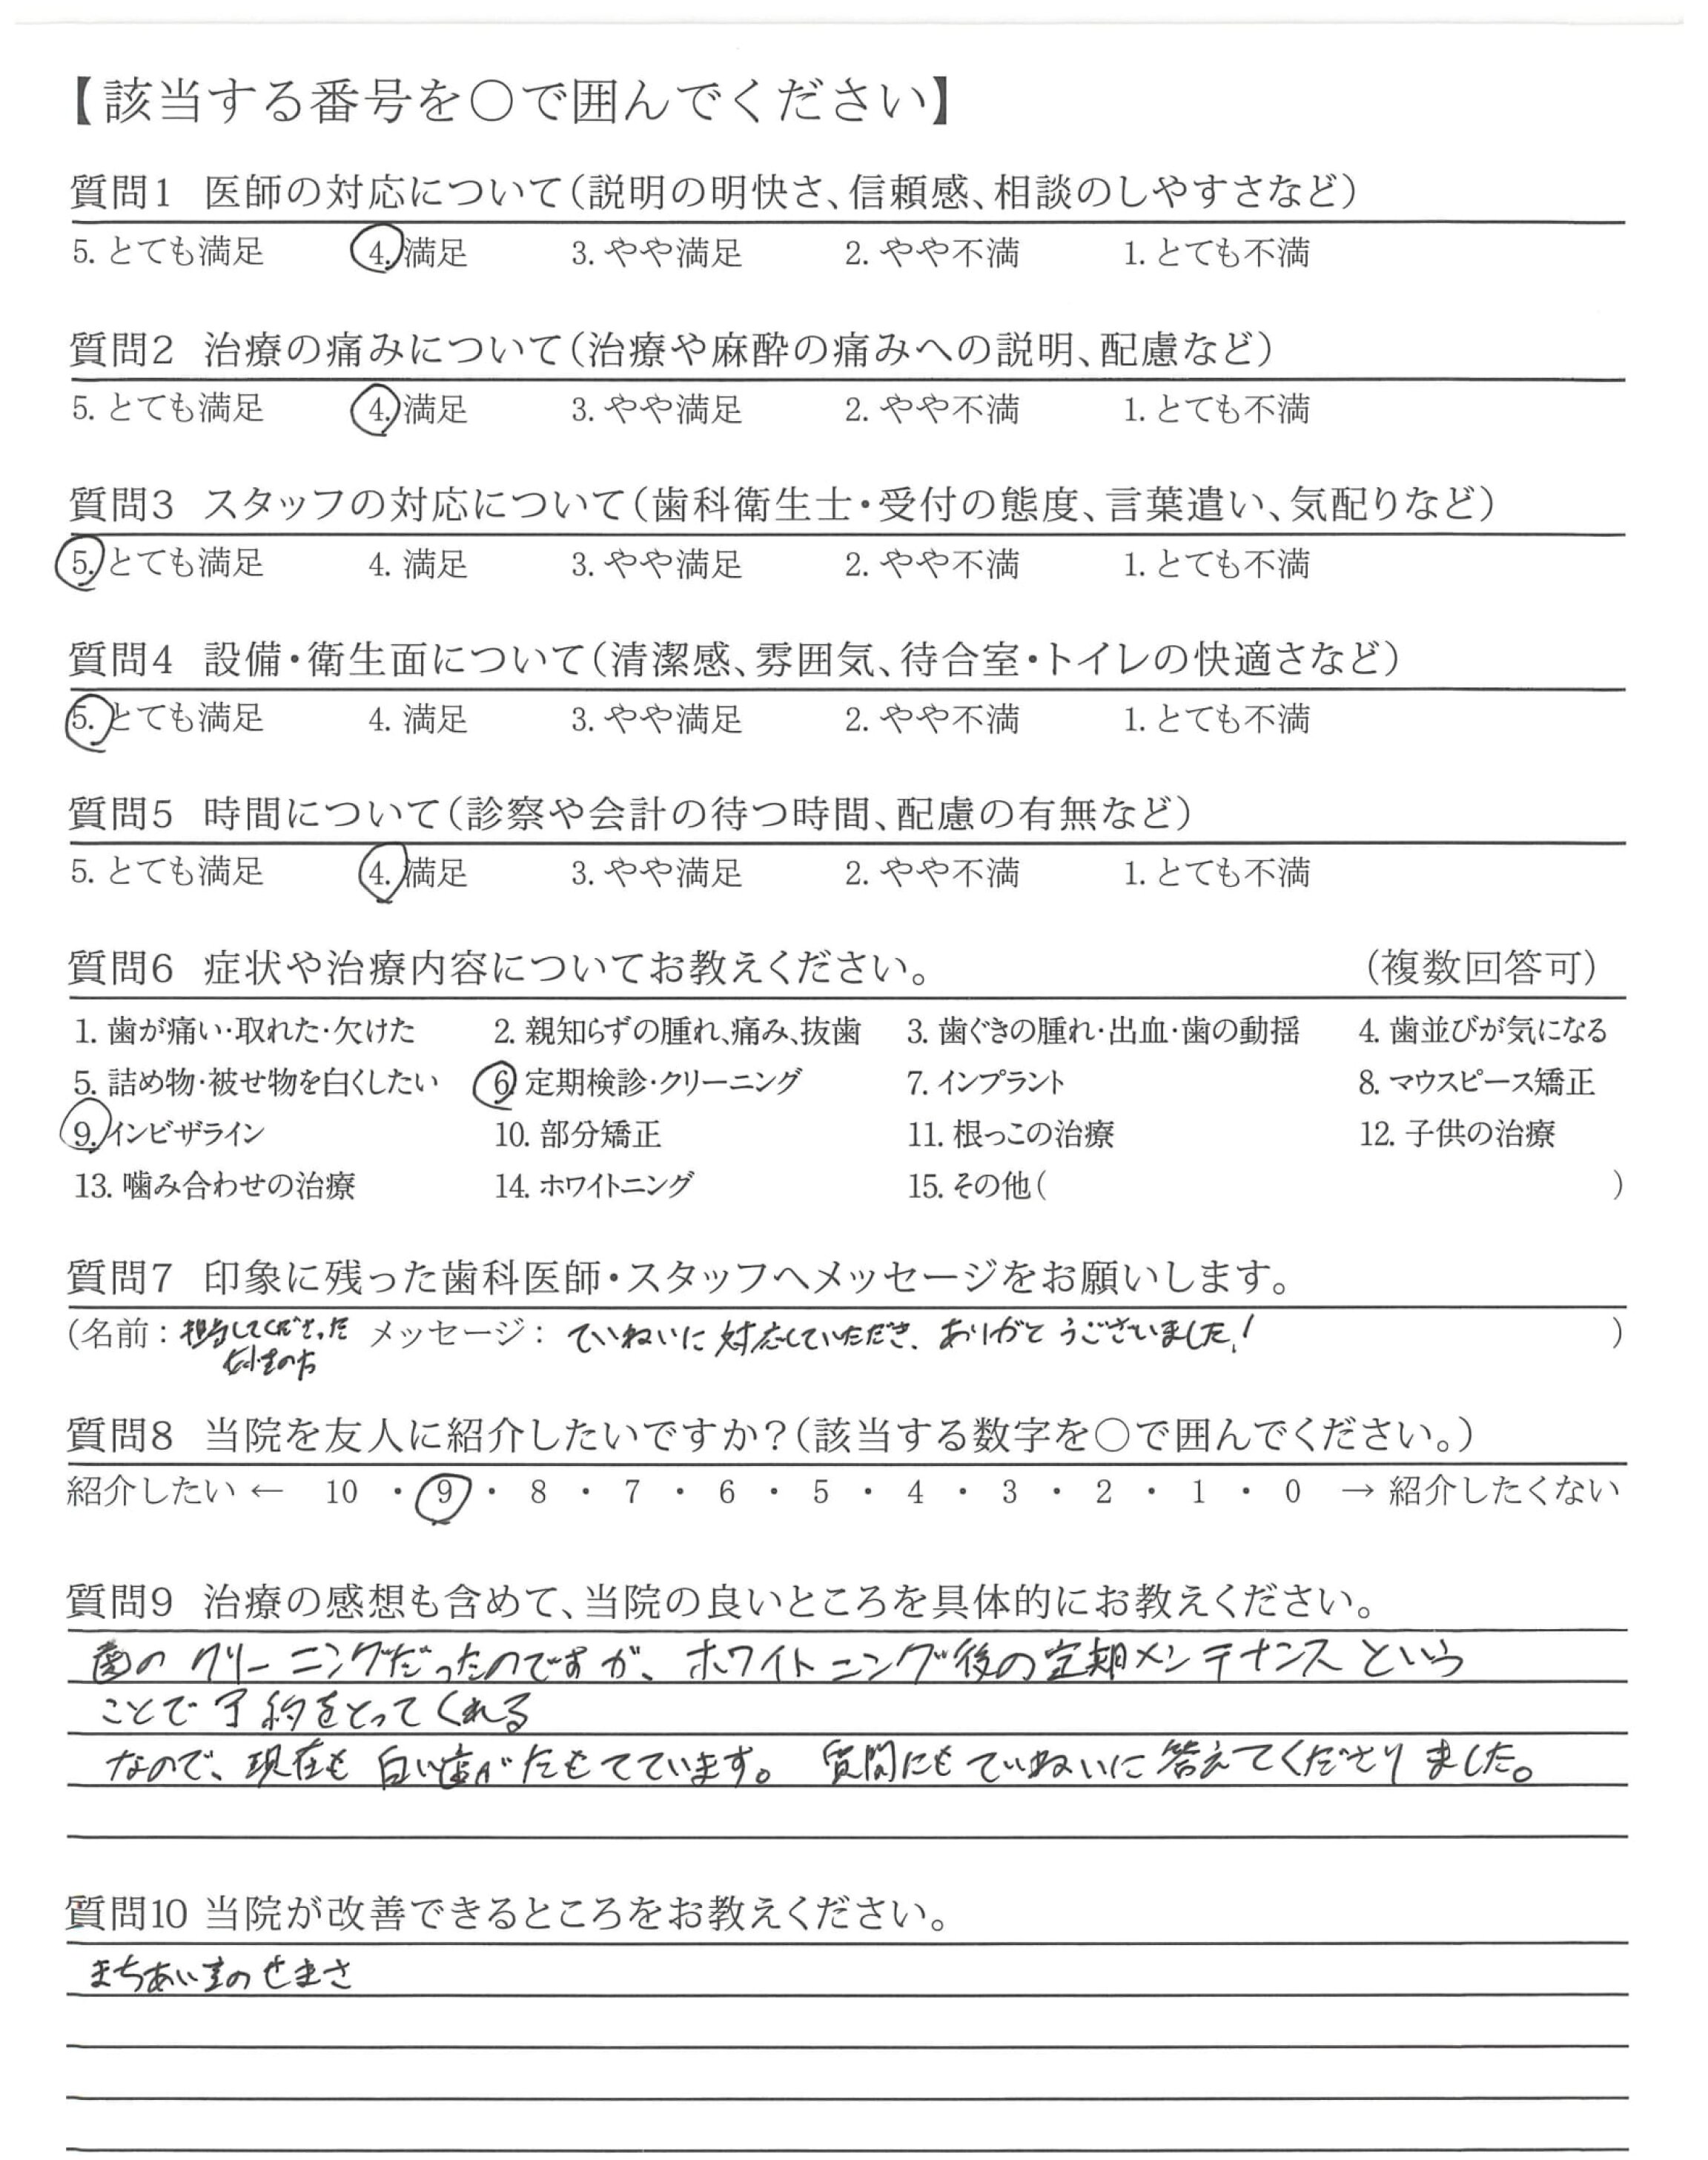 【該当する番号を○で囲んでください】
質問1 医師の対応について(説明の明快さ、信頼感、相談のしやすさなど)
5. とても満足 4. 満足 3. やや満足 2. やや不満 1. とても不満
質問2 治療の痛みについて(治療や麻酔の痛みへの説明、配慮など)
5. とても満足 4. 満足 3. やや満足 2. やや不満 1. とても不満
質問3 スタッフの対応について(歯科衛生士・受付の態度、言葉遣い、気配りなど)
5. とても満足 4. 満足 3. やや満足 2. やや不満 1. とても不満
質問4 設備・衛生面について(清潔感、雰囲気、待合室・トイレの快適さなど)
5. とても満足 4. 満足 3. やや満足 2. やや不満 1. とても不満
質問5 時間について(診察や会計の待つ時間、配慮の有無など)
5. とても満足 4. 満足 3. やや満足 2. やや不満 1. とても不満
質問6 症状や治療内容についてお教えください。 (複数回答可)
1. 歯が痛い・取れた・欠けた 2. 親知らずの腫れ、痛み、抜歯 3. 歯ぐきの腫れ・出血・歯の動揺 4. 歯並びが気になる
5. 詰め物・被せ物を白くしたい 6. 定期検診・クリーニング 7. インプラント 8. マウスピース矯正
9. インビザライン 10. 部分矯正 11. 根っこの治療 12. 子供の治療
13. 噛み合わせの治療 14. ホワイトニング 15. その他( )
質問7 印象に残った歯科医師・スタッフへメッセージをお願いします。
(名前 : 担当してくださった メッセージ : ていねいに対応していただき、ありがとうございました! )
女性の方
質問8 当院を友人に紹介したいですか?(該当する数字を○で囲んでください。)
紹介したい ← 10 ・ 9 ・ 8 ・ 7 ・ 6 ・ 5 ・ 4 ・ 3 ・ 2 ・ 1 ・ 0 → 紹介したくない
質問9 治療の感想も含めて、当院の良いところを具体的にお教えください。
歯のクリーニングだったのですが、ホワイトニング後の定期メンテナンスという
ことで予約をとってくれる
なので、現在も白い歯がたもてています。 質問にもていねいに答えてくださりました。
質問10 当院が改善できるところをお教えください。
まちあい室のせまさ